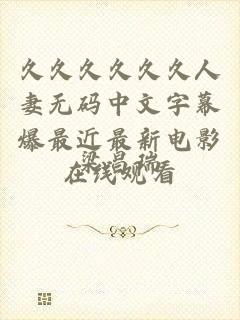 久久久久久久人
妻无码中文字幕
爆最近最新电影
梁昌瑞
在线观看